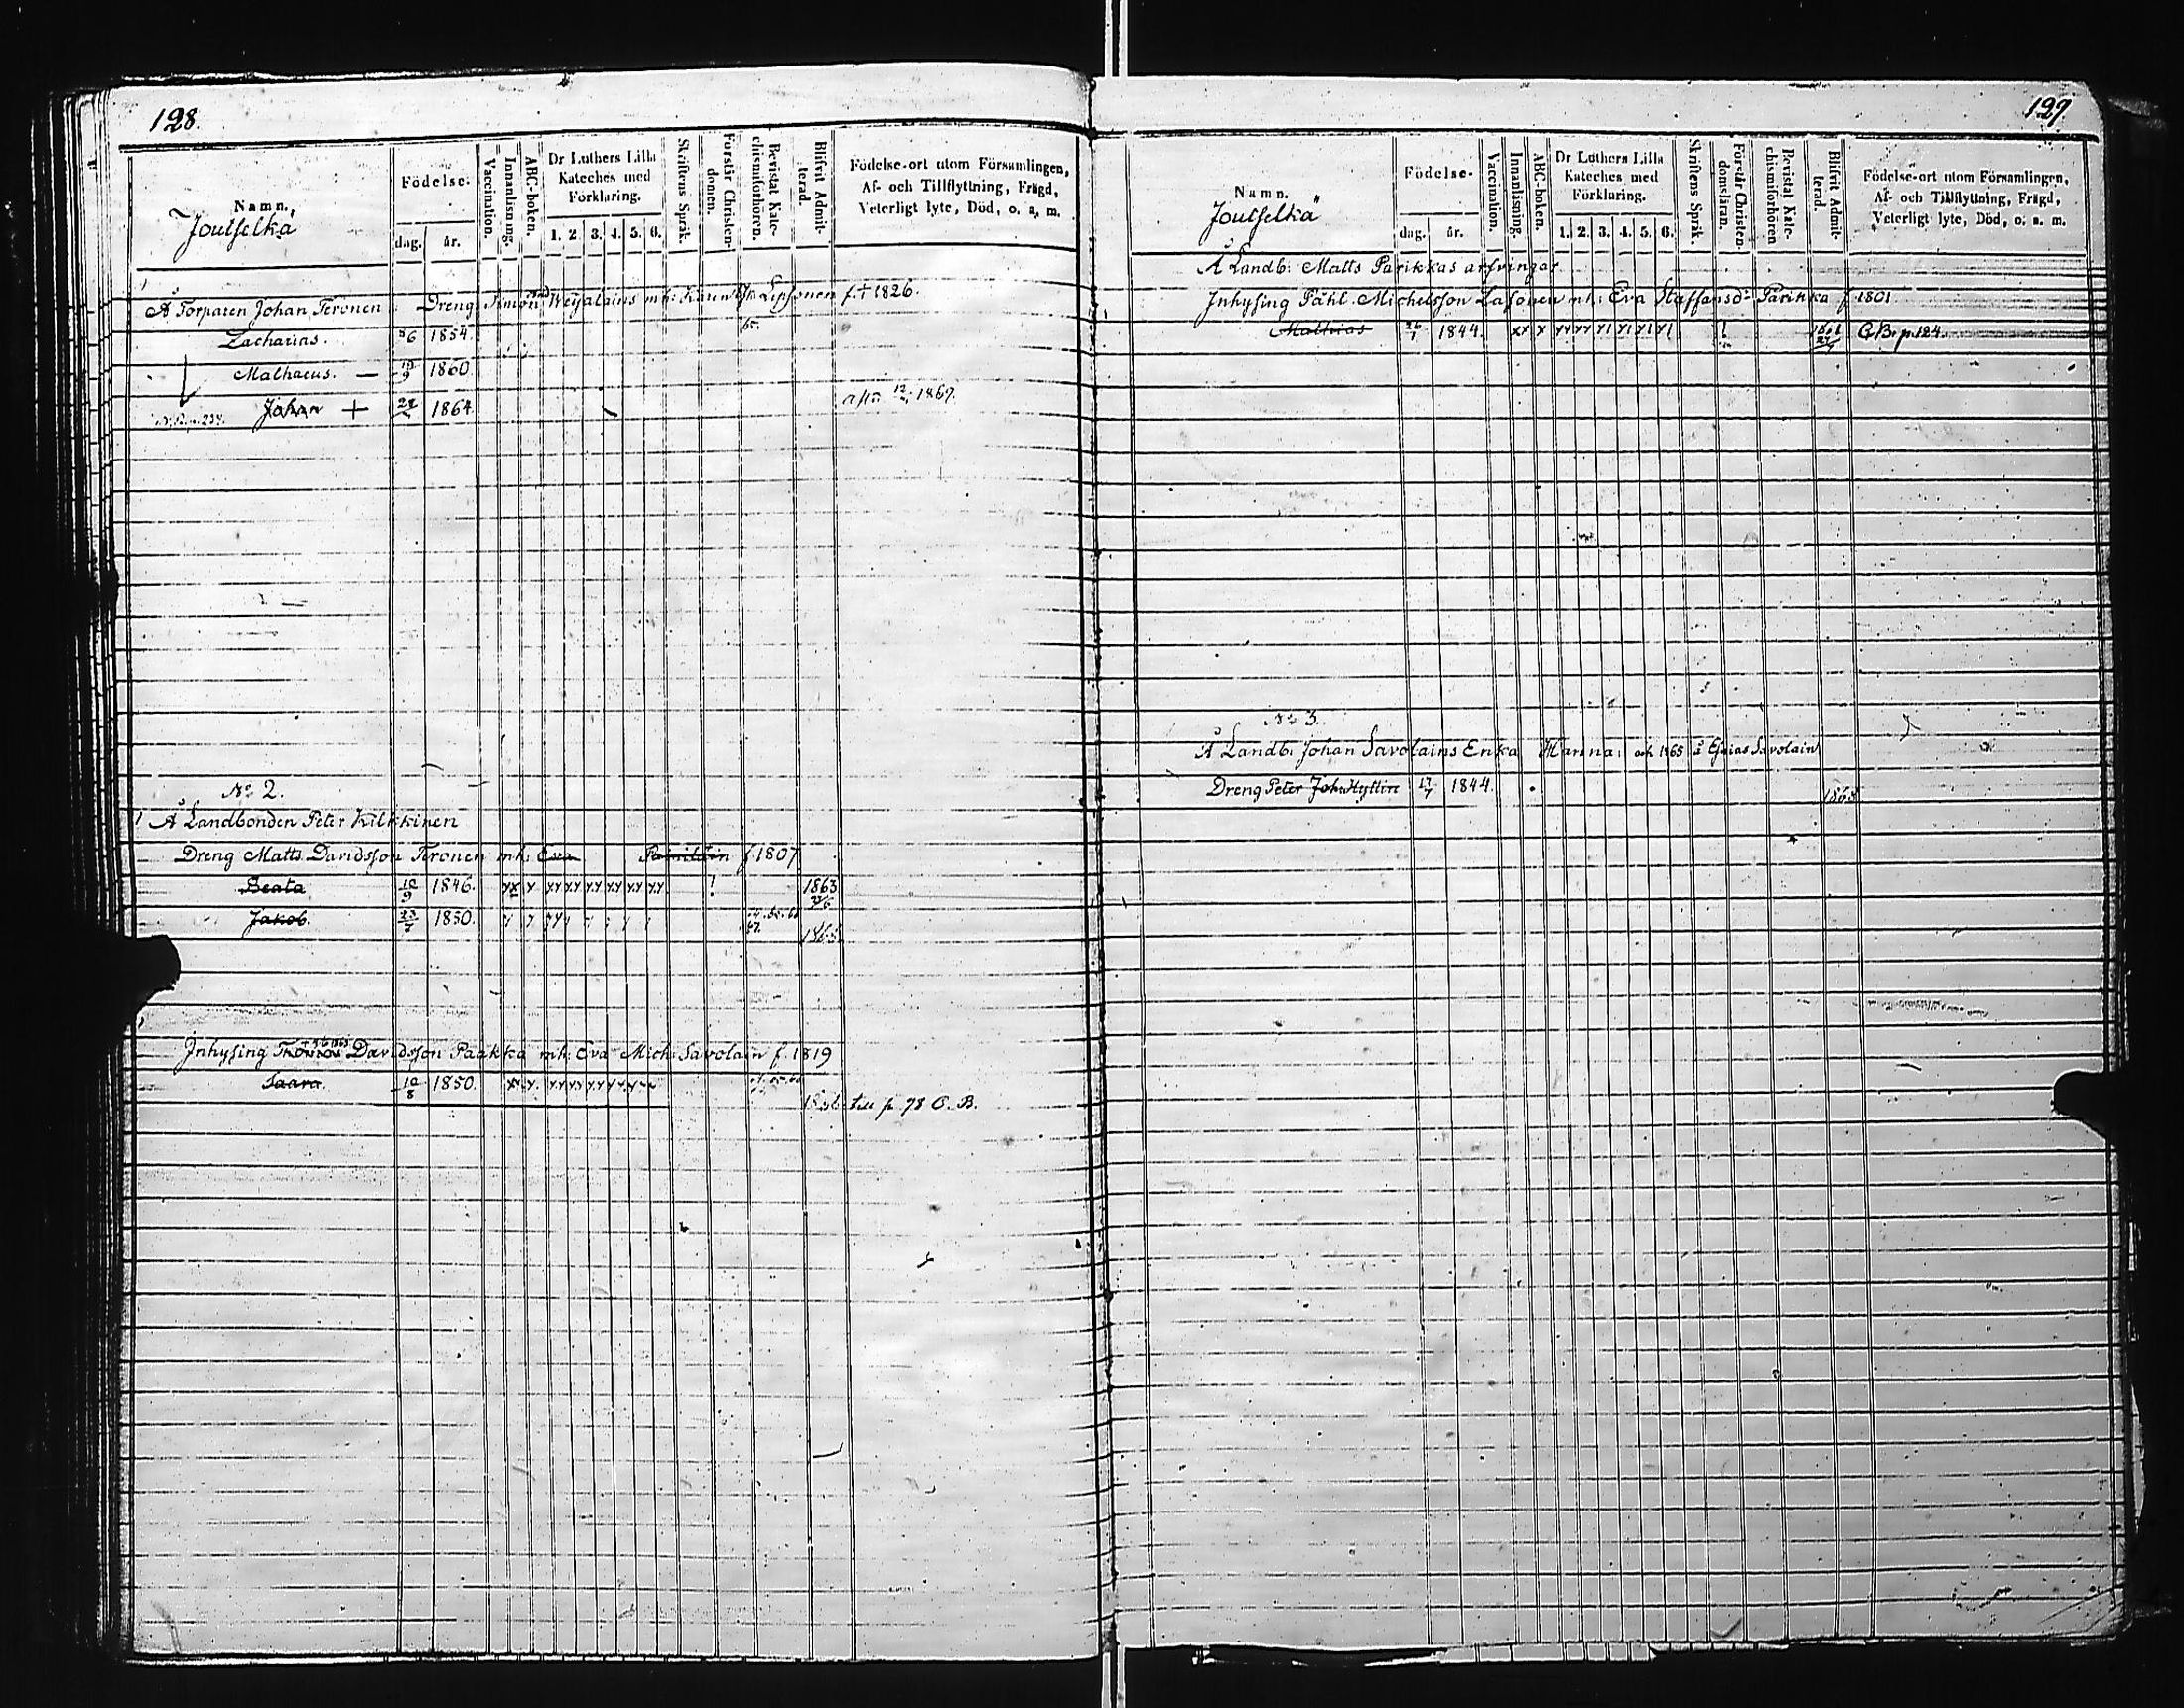 128.
Namn.
Joutselkä
Födelse.
dag.
år.
Vaccination.
Innanläsning.
ABC-boken.
Dr Luthers Lilla
Kateches med
Förklaring.
1. 2. 3. 4. 5. 6.
Skriftens Språk.
Förstår Christen-
domen.
Bevistat Kate-
chismiförhören.
Blifvit Admit-
terad.
Födelse-ort utom Församlingen,
Af- och Tillflyttning, Frägd,
Veterligt lyte, Död, o. s. m.
Å Torparen Johan Teronen Dreng Simon Weijalains mh: f. 1826.
Zacharias. 1854. 65.
Mathaeus. — 19/9 1860
Johan + 1864. 1867.
No 2.
Å Landbonden Peter Kilkkinen
Dreng Matts Davidsson Teronen mh: Eva f 1807
Beata 10/9 1846. xx y yy yy yy yy yy yy ! 1863
Jakob. 23/7 1850. y y yy
Inhysing Thomas Davidsson Paakka mh: Eva Mich: Savolain f. 1819
Saara. 10/8 1850.
till p 78 C. B.
129.
Namn.
Joutselkä
Födelse.
dag.
år.
Vaccination.
Innanläsning.
ABC-boken.
Dr Luthers Lilla
Kateches med
Förklaring.
1. 2. 3. 4. 5. 6.
Skriftens Språk.
Förstår Christen-
domsläran.
Bevistat Kate-
chismiförhören
Blifvit Admit-
terad.
Födelse-ort utom Församlingen,
Af- och Tillflyttning, Frägd,
Veterligt lyte, Död, o. s. m.
Å Landb: Matts Parikkas arfvingar
Inhysing Påhl Michelsson Lasonen mh: Eva Staffansd: Parikka f 1801
Mathias 26/1 1844. xx y yy yy y1 y1 y1 y1 ! C.B. p. 124.
No 3.
Å Landb: Johan Savolains Enka Hanna: och 1865 å Esaias Savolain
Dreng Peter Joh: Hyttin 17/7 1844.